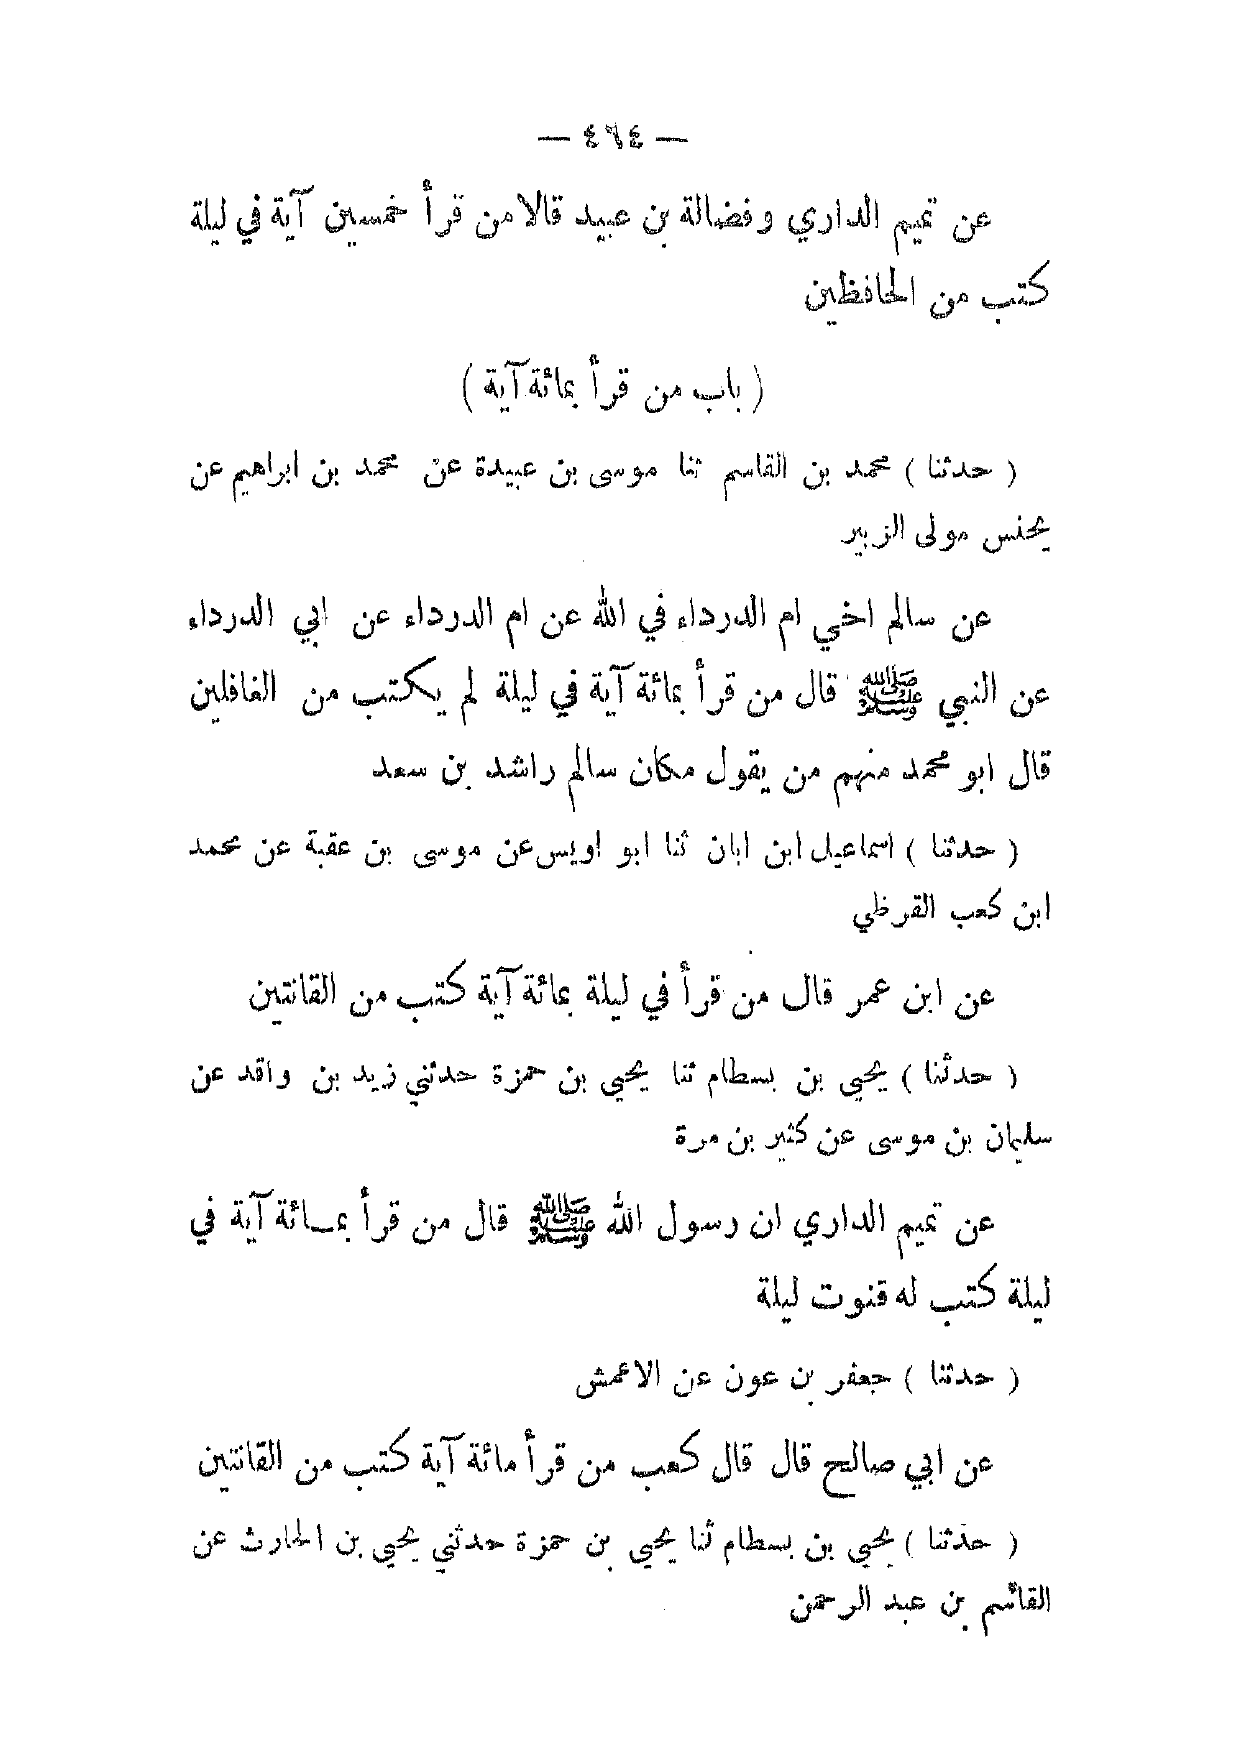 — ٤٦٤ —
عن تميم الداري وفضالة بن عبيد قالا من قرأ خمسين آية في ليلة
كتب من الحافظين
( باب من قرأ بمائة آية )
( حدثنا ) محمد بن القاسم ثنا موسى بن عبيدة عن محمد بن ابراهيم عن
يحنس مولى الزبير
عن سالم اخي ام الدرداء في الله عن ام الدرداء عن ابي الدرداء
عن النبي ﷺ قال من قرأ بمائة آية في ليلة لم يكتب من الغافلين
قال ابو محمد منهم من يقول مكان سالم راشد بن سعد
( حدثنا ) اسماعيل ابن ابان ثنا ابو اويس عن موسى بن عقبة عن محمد
ابن كعب القرظي
عن ابن عمر قال من قرأ في ليلة بمائة آية كتب من القانتين
( حدثنا ) يحيى بن بسطام ثنا يحيى بن حمزة حدثني زيد بن واقد عن
سليمان بن موسى عن كثير بن مرة
عن تميم الداري ان رسول الله ﷺ قال من قرأ بمـائة آية في
ليلة كتب له قنوت ليلة
( حدثنا ) جعفر بن عون عن الاعمش
عن ابي صالح قال قال كعب من قرأ مائة آية كتب من القانتين
( حدثنا ) يحيى بن بسطام ثنا يحيى بن حمزة حدثني يحيى بن الحارث عن
القاسم بن عبد الرحمن